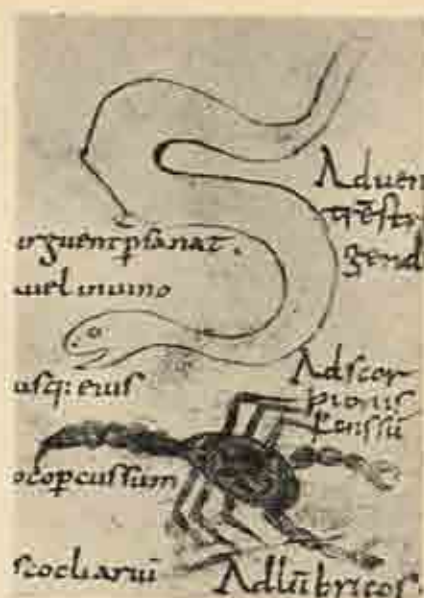 Ad uen
trē strin
gend
urguent psanat.
uel inuino
usq: eius
Ad scor
pionis
ocopcussum
scocliarui
Ad lūbricos